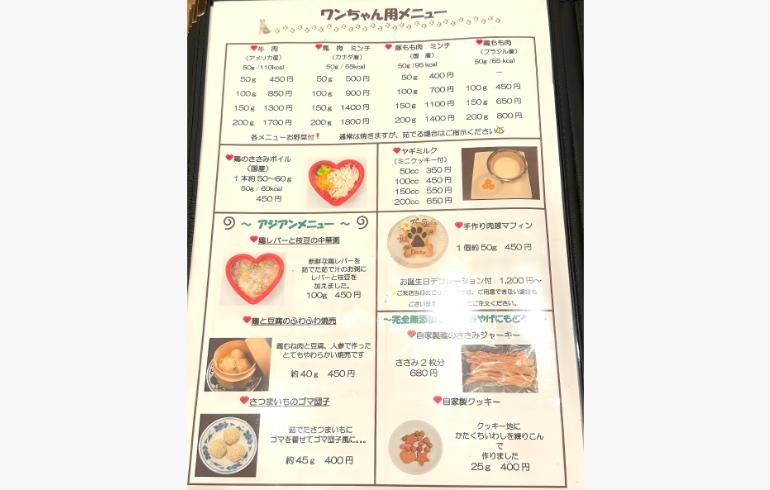 ワンちゃん用メニュー
牛 肉
(アメリカ産)
50g/110kcal
50g 450円
100g 850円
150g 1300円
200g 1700円
馬 肉 ミンチ
(カナダ産)
50g/55kcal
50g 500円
100g 900円
150g 1400円
200g 1800円
豚もも肉 ミンチ
(国 産)
50g/95kcal
50g 400円
100g 700円
150g 1100円
200g 1400円
鶏もも肉
(ブラジル産)
50g/65kcal
―
100g 450円
150g 650円
200g 800円
各メニューお野菜付! 通常は焼きますが、茹でる場合はご指示ください
鶏のささみボイル
(国産)
1本約50〜60g
50g/60kcal
450円
ヤギミルク
(ミニクッキー付)
50cc 350円
100cc 450円
150cc 550円
200cc 650円
〜 アジアンメニュー 〜
鶏レバーと枝豆の中華粥
新鮮な鶏レバーを
茹でた茹で汁のお粥に
レバーと枝豆を
加えました。
100g 450円
鶏と豆腐のふわふわ焼売
鶏むね肉と豆腐、人参で作った
とてもやわらかい焼売です
約40g 450円
さつまいものゴマ団子
茹でたさつまいもに
ゴマを着せてゴマ団子風に。。。
約45g 400円
手作り肉球マフィン
1個約50g 450円
お誕生日デコレーション付 1,200円〜
ご用意できない場合も
ございます
ご注文ください。
〜完全無添加
みやげにもどう
自家製鶏のささみジャーキー
ささみ2枚分
680円
自家製クッキー
クッキー地に
かたくちいわしを練りこん
で
作りました
25g 400円